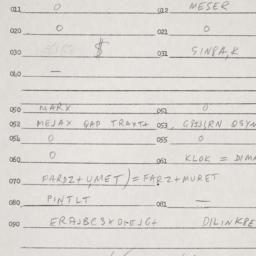 011 0 012 MESER
020 0 021 0
030 $ 031 SINPA,K
040 —
050 MARX 051 0
052 MEJAX QAD TRAXT+ 053
054 0 055 0
060 0 061 KLOK = DIMA
070 FARDZ+UMET)=FARZ+MURET
080 PINTLT 081 —
090 DILINKPE